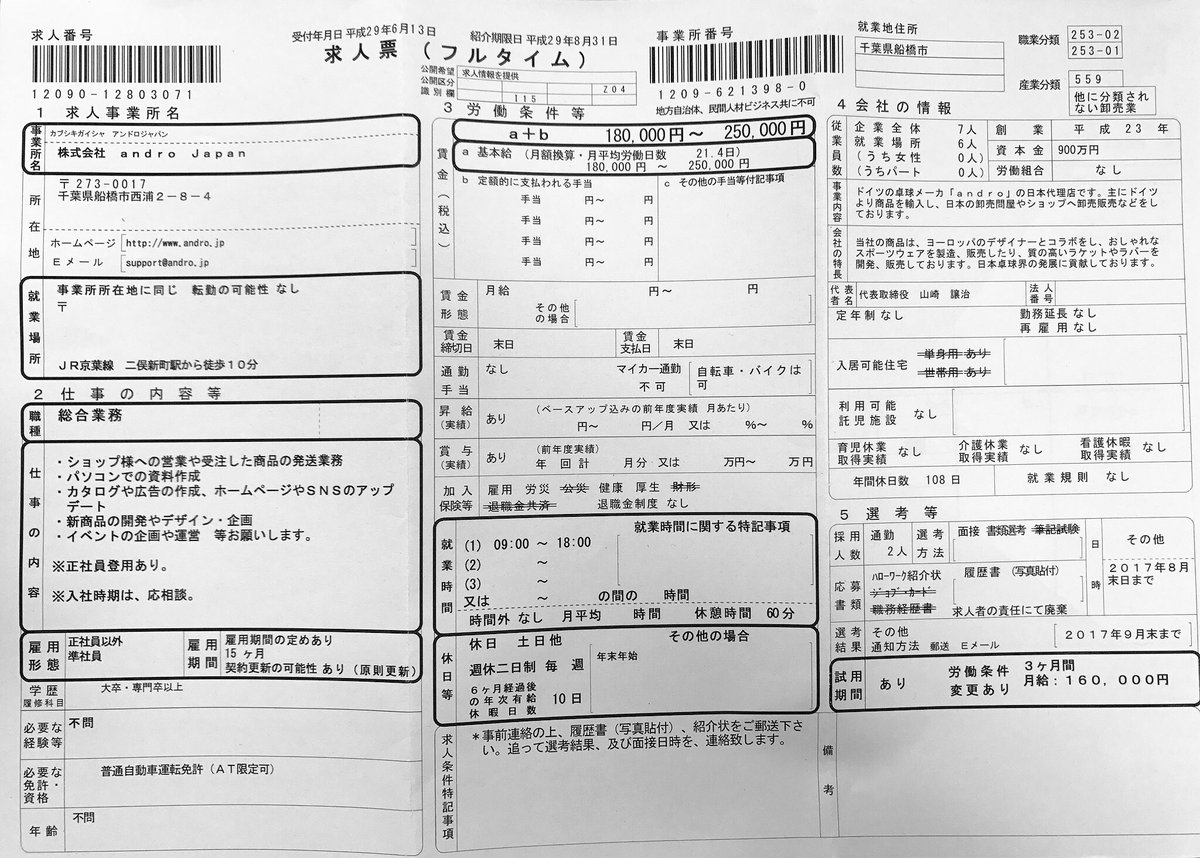 求人番号
12090-12803071
受付年月日 平成29年6月13日
紹介期限日 平成29年8月31日
求人票（フルタイム）
公開希望 求人情報を提供
公開区分
識別欄 115 Z04
事業所番号
1209-621398-0
地方自治体、民間人材ビジネス共に不可
就業地住所
千葉県船橋市
職業分類 253-02
253-01
産業分類 559
他に分類されない卸売業
1 求人事業所名
事業所名
カブシキガイシャ アンドロジャパン
株式会社 andro Japan
所在地
〒273-0017
千葉県船橋市西浦2-8-4
ホームページ http://www.andro.jp
Eメール support@andro.jp
就業場所
事業所所在地に同じ 転勤の可能性 なし
〒
JR京葉線 二俣新町駅から徒歩10分
2 仕事の内容等
職種 総合業務
仕事の内容
・ショップ様への営業や受注した商品の発送業務
・パソコンでの資料作成
・カタログや広告の作成、ホームページやSNSのアップ
デート
・新商品の開発やデザイン・企画
・イベントの企画や運営 等お願いします。
※正社員登用あり。
※入社時期は、応相談。
雇用形態
正社員以外
準社員
雇用期間
雇用期間の定めあり
15ヶ月
契約更新の可能性 あり（原則更新）
学歴 大卒・専門卒以上
履修科目
必要な経験等 不問
必要な免許・資格 普通自動車運転免許（AT限定可）
年齢 不問
3 労働条件等
賃金（税込）
a+b 180,000円～ 250,000円
a 基本給（月額換算・月平均労働日数 21.4日）
180,000円～ 250,000円
b 定額的に支払われる手当
手当 円～ 円
手当 円～ 円
手当 円～ 円
手当 円～ 円
c その他の手当等付記事項
賃金形態 月給 円～ 円
その他の場合
賃金締切日 末日
賃金支払日 末日
通勤手当 なし
マイカー通勤 不可
自転車・バイクは可
昇給（実績） あり
（ベースアップ込みの前年度実績 月あたり）
円～ 円／月 又は %～ %
賞与（実績） あり
（前年度実績）
年 回 計 月分 又は 万円～ 万円
加入保険等
雇用 労災 公災 健康 厚生 財形
退職金共済 退職金制度 なし
就業時間
就業時間に関する特記事項
(1) 09:00 ～ 18:00
(2) ～
(3) ～
又は ～ の間の 時間
時間外 なし 月平均 時間 休憩時間 60分
休日等
休日 土日他 その他の場合
週休二日制 毎 週
年末年始
6ヶ月経過後の年次有給休暇日数 10日
求人条件特記事項
＊事前連絡の上、履歴書（写真貼付）、紹介状をご郵送下さ
い。追って選考結果、及び面接日時を、連絡致します。
4 会社の情報
従業員数
企業全体 7人
就業場所 6人
（うち女性 0人）
（うちパート 0人）
創業 平成 23年
資本金 900万円
労働組合 なし
事業内容
ドイツの卓球メーカ「andro」の日本代理店です。主にドイツ
より商品を輸入し、日本の卸売問屋やショップへ卸売販売などをし
ております。
会社の特長
当社の商品は、ヨーロッパのデザイナーとコラボをし、おしゃれな
スポーツウェアを製造、販売したり、質の高いラケットやラバーを
開発、販売しております。日本卓球界の発展に貢献しております。
代表者名 代表取締役 山崎 譲治
法人番号
定年制 なし
勤務延長 なし
再雇用 なし
入居可能住宅
単身用 あり
世帯用 あり
利用可能託児施設 なし
育児休業取得実績 なし
介護休業取得実績 なし
看護休暇取得実績 なし
年間休日数 108日
就業規則 なし
5 選考等
採用人数 通勤 2人
選考方法 面接 書類選考 筆記試験
日時 その他
2017年8月
末日まで
応募書類
ハローワーク紹介状 履歴書（写真貼付）
ジョブ・カード
職務経歴書 求人者の責任にて廃棄
選考結果 その他
通知方法 郵送 Eメール
2017年9月末まで
試用期間 あり
労働条件 変更あり
3ヶ月間
月給：160，000円
備考